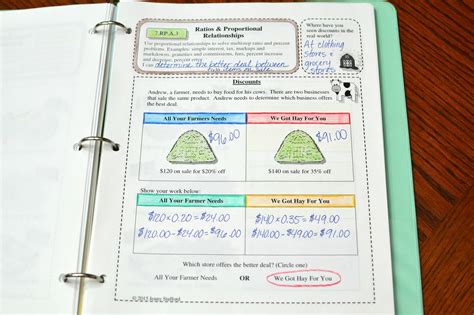 7.RP.A.3
Ratios & Proportional
Relationships
Use proportional relationships to solve multistep ratio and percent
problems. Examples: simple interest, tax, markups and
markdowns, gratuities and commissions, fees, percent increase
and decrease, percent error.
I can determine the better deal between
two items on sale.
Where have you
seen discounts in the
real world?
At clothing
stores &
grocery
stores
Discounts
Andrew, a farmer, needs to buy food for his cows. There are two businesses
that sale the same product. Andrew needs to determine which business offers
the best deal.
All Your Farmers Needs
We Got Hay For You
$96.00
$91.00
$120 on sale for $20% off
$140 on sale for 35% off
Show your work below:
All Your Farmer Needs
We Got Hay For You
$120 x 0.20 = $24.00
$120.00 - $24.00 = $96.00
$140 x 0.35 = $49.00
$140.00 - $49.00 = $91.00
Which store offers the better deal? (Circle one)
All Your Farmer Needs OR We Got Hay For You